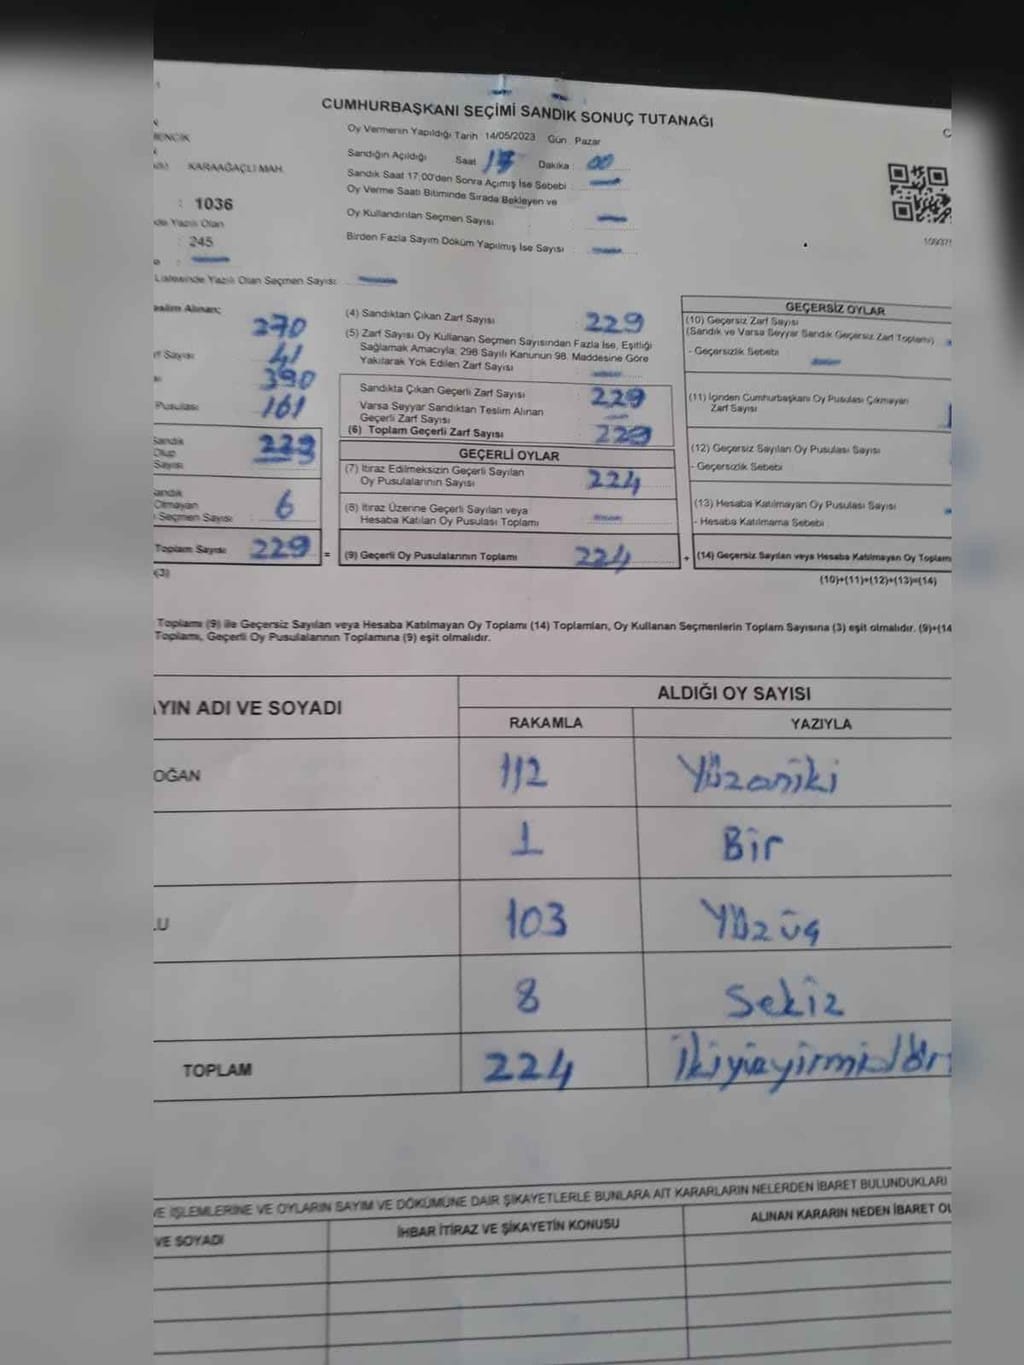 CUMHURBAŞKANI SEÇİMİ SANDIK SONUÇ TUTANAĞI
Oy Vermenin Yapıldığı Tarih 14/05/2023 Gün Pazar
Sandığın Açıldığı Saat 17 Dakika : 00
Sandık Saat 17:00'den Sonra Açımış İse Sebebi :
Oy Verme Saati Bitiminde Sırada Bekleyen ve
Oy Kullandırılan Seçmen Sayısı
Birden Fazla Sayım Döküm Yapılmış İse Sayısı
KARAAĞAÇLI MAH.
: 1036
de Yazılı Olan
: 245
Listesinde Yazılı Olan Seçmen Sayısı
eslim Alınan;
270
rf Sayısı 41
390
Pusulası 161
Sandık
Olup
Sayısı
229
andık
Olmayan
Seçmen Sayısı : 6
Toplam Sayısı 229 =
(3)
(4) Sandıktan Çıkan Zarf Sayısı : 229
(5) Zarf Sayısı Oy Kullanan Seçmen Sayısından Fazla İse, Eşitliği
Sağlamak Amacıyla; 298 Sayılı Kanunun 98. Maddesine Göre
Yakılarak Yok Edilen Zarf Sayısı
Sandıkta Çıkan Geçerli Zarf Sayısı : 229
Varsa Seyyar Sandıktan Teslim Alınan
Geçerli Zarf Sayısı
(6) Toplam Geçerli Zarf Sayısı : 229
GEÇERLİ OYLAR
(7) İtiraz Edilmeksizin Geçerli Sayılan
Oy Pusulalarının Sayısı : 224
(8) İtiraz Üzerine Geçerli Sayılan veya
Hesaba Katılan Oy Pusulası Toplamı
(9) Geçerli Oy Pusulalarının Toplamı 224 +
GEÇERSİZ OYLAR
(10) Geçersiz Zarf Sayısı
(Sandık ve Varsa Seyyar Sandık Geçersiz Zarf Toplamı)
- Geçersizlik Sebebi
(11) İçinden Cumhurbaşkanı Oy Pusulası Çıkmayan
Zarf Sayısı
(12) Geçersiz Sayılan Oy Pusulası Sayısı
- Geçersizlik Sebebi
(13) Hesaba Katılmayan Oy Pusulası Sayısı
- Hesaba Katılmama Sebebi
(14) Geçersiz Sayılan veya Hesaba Katılmayan Oy Toplam
(10)+(11)+(12)+(13)=(14)
Toplamı (9) ile Geçersiz Sayılan veya Hesaba Katılmayan Oy Toplamı (14) Toplamları, Oy Kullanan Seçmenlerin Toplam Sayısına (3) eşit olmalıdır. (9)+(14
Toplamı, Geçerli Oy Pusulalarının Toplamına (9) eşit olmalıdır.
AYIN ADI VE SOYADI ALDIĞI OY SAYISI
RAKAMLA YAZIYLA
OĞAN 112 Yüzoniki
1 Bir
LU 103 Yüzüç
8 Sekiz
TOPLAM 224
VE İŞLEMLERİNE VE OYLARIN SAYIM VE DÖKÜMÜNE DAİR ŞİKAYETLERLE BUNLARA AİT KARARLARIN NELERDEN İBARET BULUNDUKLARI
VE SOYADI İHBAR İTİRAZ VE ŞİKAYETİN KONUSU ALINAN KARARIN NEDEN İBARET OL